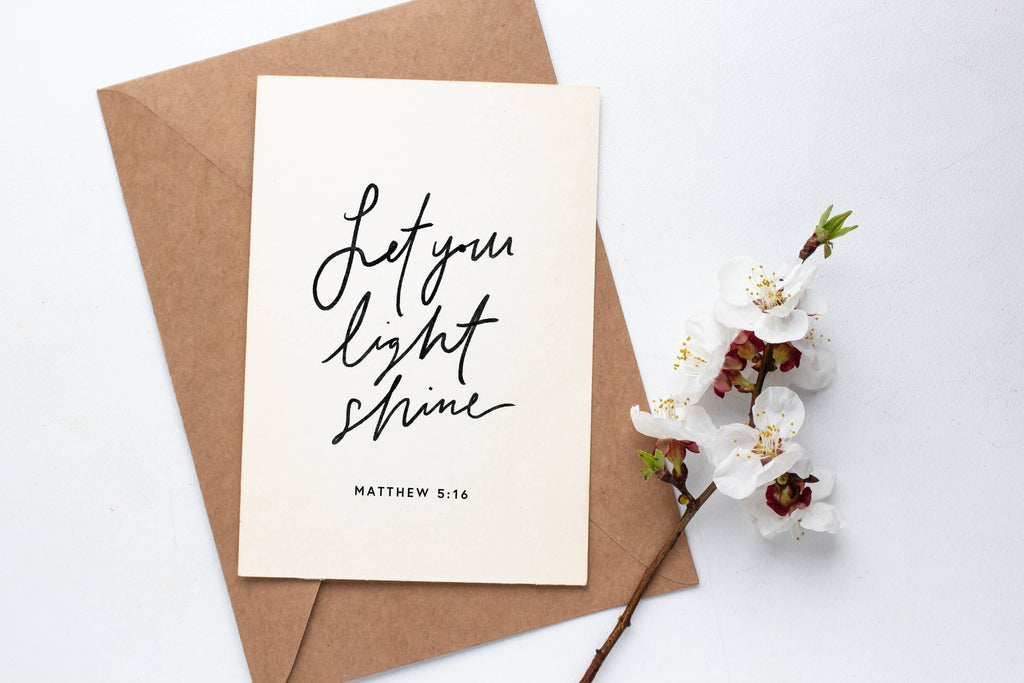 Let your
light
shine
MATTHEW 5:16